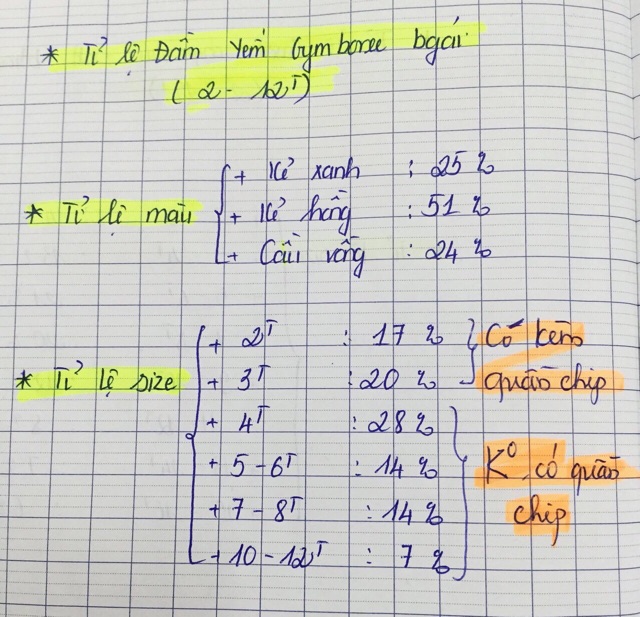 * Tỉ lệ Đầm Yếm Gymboree bgái
(2 - 12T)
* Tỉ lệ màu
+ Kẻ xanh : 25 %
+ Kẻ hồng : 51 %
+ Cầu vồng : 24 %
* Tỉ lệ size
+ 2T : 17 %
+ 3T : 20 %
Có kèm
quần chip
+ 4T : 28 %
+ 5 - 6T : 14 %
+ 7 - 8T : 14 %
+ 10 - 12T : 7 %
K° có quần
chip